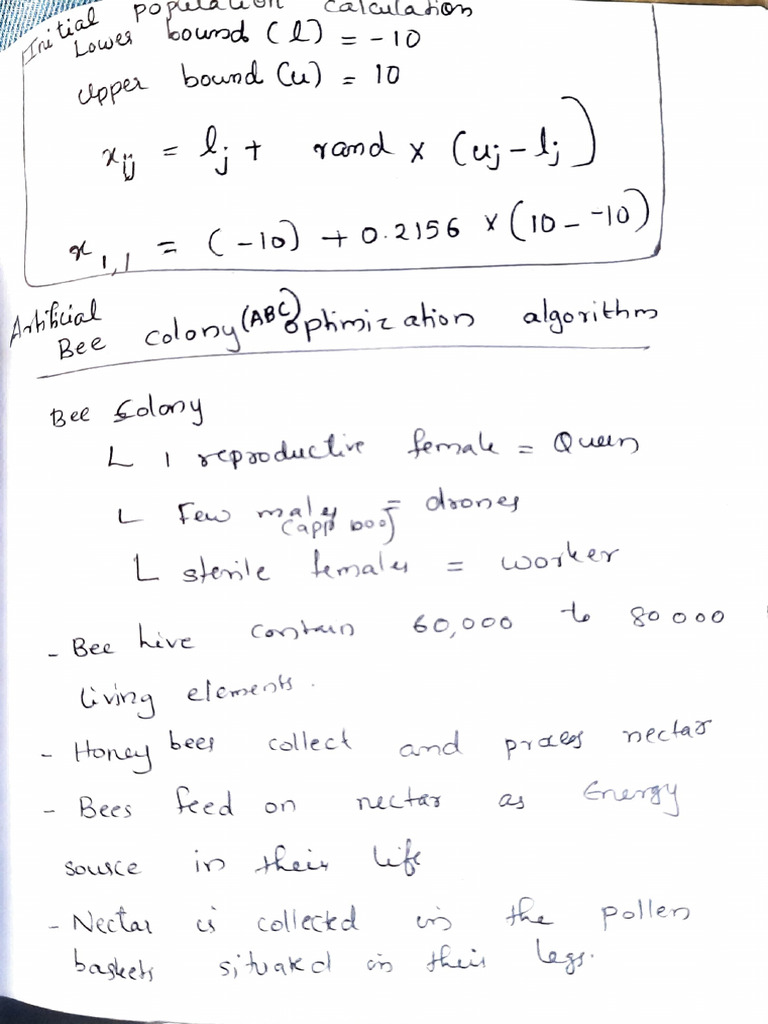 Initial population calculation
Lower bound (l) = -10
Upper bound (u) = 10
x_ij = l_j + rand × (u_j - l_j)
x_1,1 = (-10) + 0.2156 × (10 - -10)
Artificial
Bee colony (ABC) optimization algorithm
Bee Colony
L 1 reproductive female = Queen
L Few males = drones
(app 600)
L sterile females = worker
- Bee hive contain 60,000 to 80000
living elements.
- Honey bees collect and process nectar
- Bees feed on nectar as Energy
source in their life
- Nectar is collected in the pollen
baskets situated in their legs.